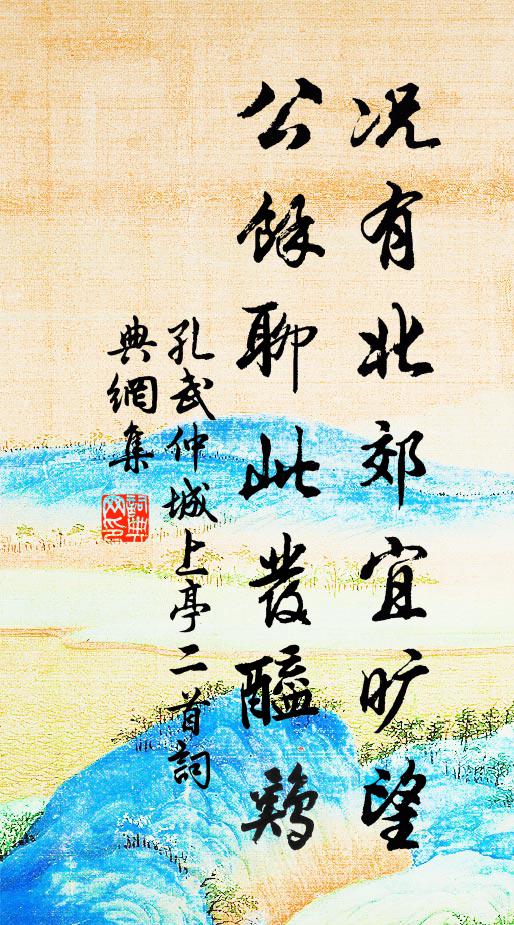 况有北郊宜旷望
公餘聊此發醯鷄
孔武仲城上亭二首詞
典網集